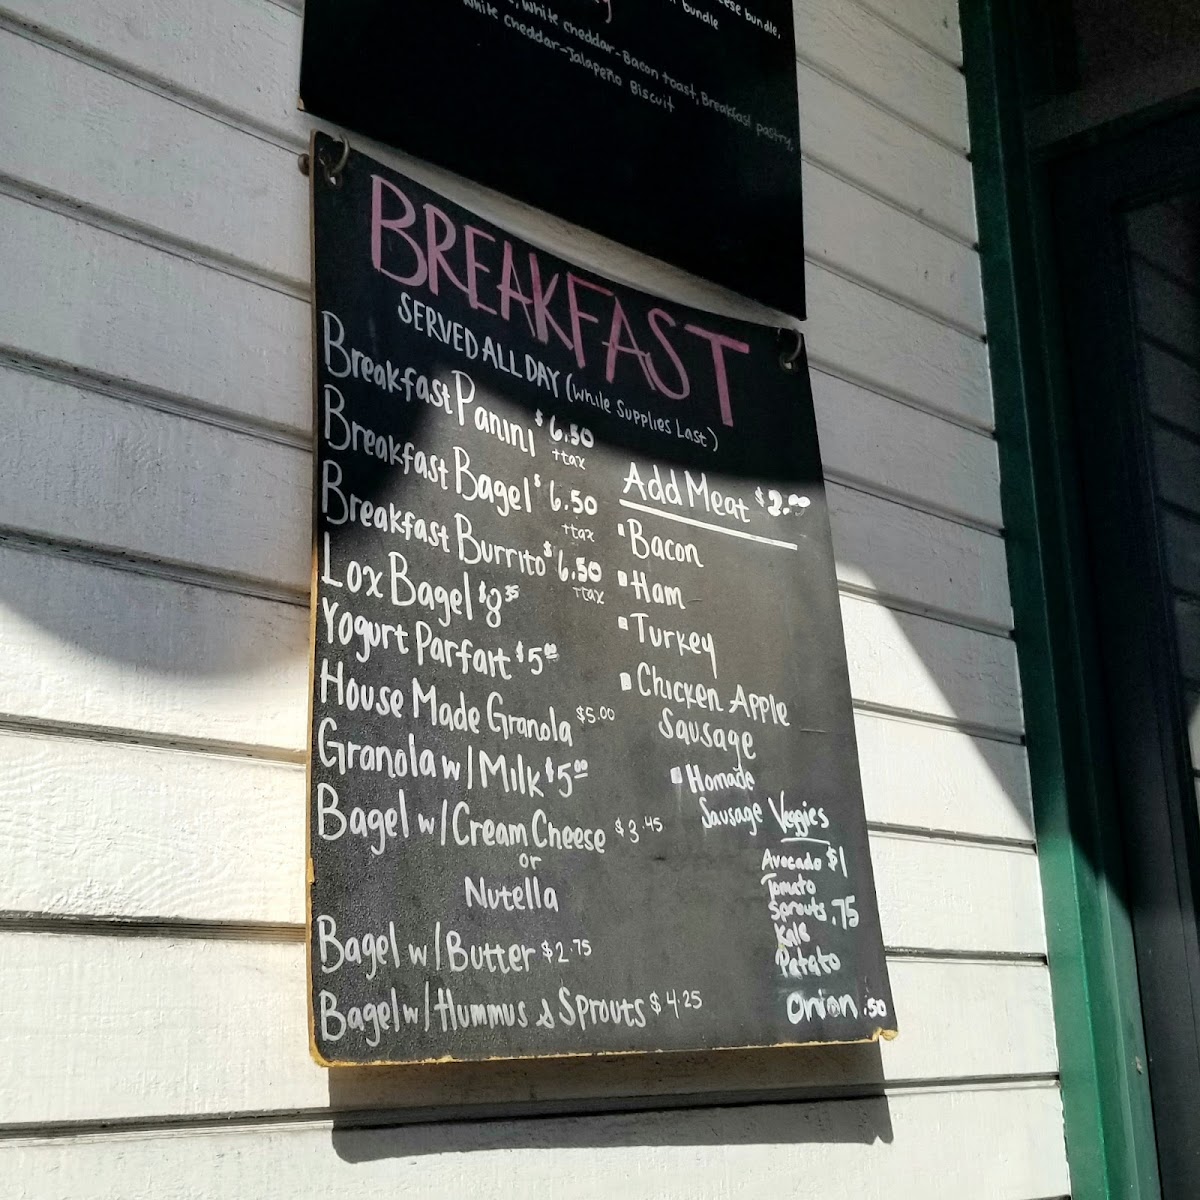 ese bundle,
bundle
, White cheddar-Bacon toast, Breakfast pastry,
White Cheddar-Jalapeño Biscuit
BREAKFAST
SERVED ALL DAY (While Supplies Last)
Breakfast Panini $6.50
+tax
Breakfast Bagel $6.50
+tax
Breakfast Burrito $6.50
+tax
Lox Bagel $8.35
Yogurt Parfait $5.00
House Made Granola $5.00
Granola w/ Milk $5.00
Bagel w/ Cream Cheese $3.45
or
Nutella
Bagel w/ Butter $2.75
Bagel w/ Hummus & Sprouts $4.25
Add Meat $2.00
Bacon
Ham
Turkey
Chicken Apple
Sausage
Homade
Sausage
Veggies
Avocado $1
Tomato
Sprouts .75
Kale
Patato
Onion .50